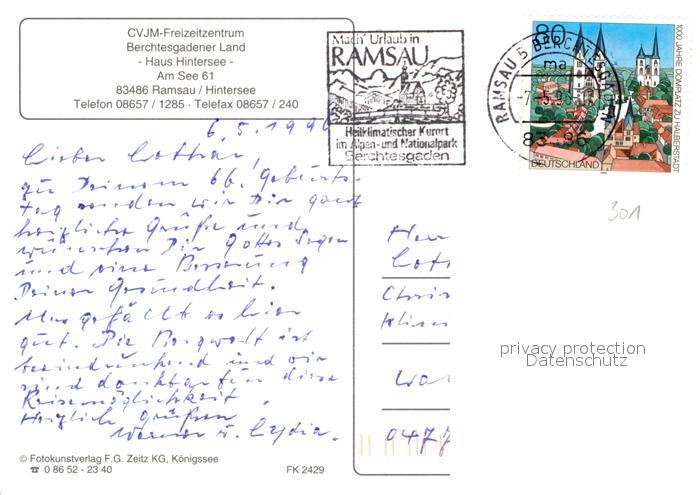 CVJM-Freizeitzentrum
Berchtesgadener Land
- Haus Hintersee -
Am See 61
83486 Ramsau / Hintersee
Telefon 08657 / 1285 · Telefax 08657 / 240
Mach' Urlaub in
RAMSAU
Heilklimatischer Kurort
im Alpen- und Nationalpark
Berchtesgaden
RAMSAU B BERCHTESGADEN
ma
80
1000 JAHRE DOMPLATZ ZU HALBERSTADT
DEUTSCHLAND
6.5.1996
Lieber Lothar,
zu Deinem 66. Geburts-
tag senden wir Dir ganz
herzliche Grüße und
wünschen Dir Gottes Segen
und eine Besserung
Deiner Gesundheit.
Uns gefällt es hier
gut. Die Bergwelt ist
beeindruckend und wir
sind dankbar für diese
Reisemöglichkeit.
Herzlich grüßen
Werner u. Lydia.
301
Herr
Loth
Chris
Klin
Wa
0477
privacy protection
Datenschutz
© Fotokunstverlag F.G. Zeitz KG, Königssee
☎ 0 86 52 - 23 40
FK 2429